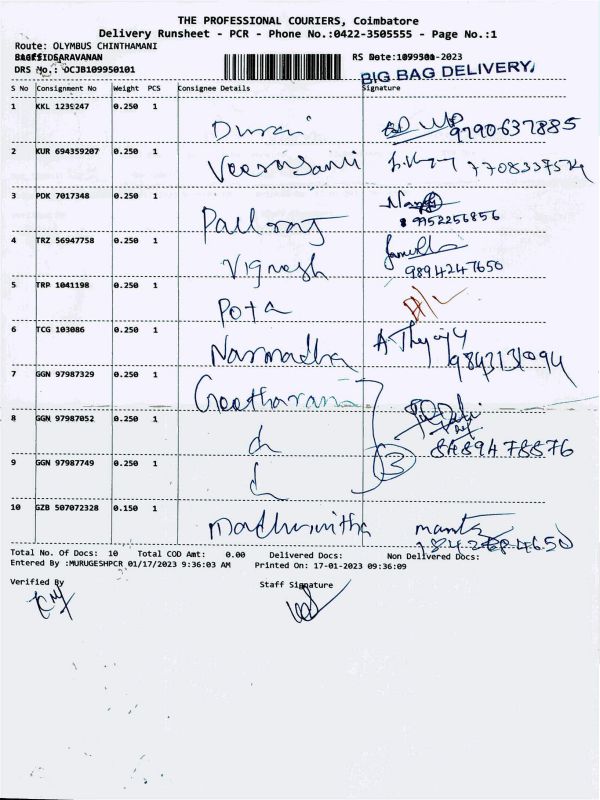 THE PROFESSIONAL COURIERS, Coimbatore
Delivery Runsheet - PCR - Phone No.:0422-3505555 - Page No.:1
Route: OLYMBUS CHINTHAMANI
RS Date: -2023
DRS No.: OCJB109950101
BIG BAG DELIVERY
S No Consignment No Weight PCS Consignee Details Signature
1 KKL 1235247 0.250 1 Durai 9790637885
2 KUR 694359207 0.250 1 Veerasami
3 PDK 7017348 0.250 1 Pallraj 9952256856
4 TRZ 56947758 0.250 1 Vignesh 9894247650
5 TRP 1041198 0.250 1 Pota
6 TCG 103086 0.250 1 Narmadha 9843131094
7 GGN 97987329 0.250 1 Geetharani
8 GGN 97987052 0.250 1 8489478876
9 GGN 97987749 0.250 1 3
10 GZB 507072328 0.150 1 Madhumitha
Total No. Of Docs: 10 Total COD Amt: 0.00 Delivered Docs: Non Delivered Docs:
Entered By :MURUGESHPCR 01/17/2023 9:36:03 AM Printed On: 17-01-2023 09:36:09
Verified By Staff Signature